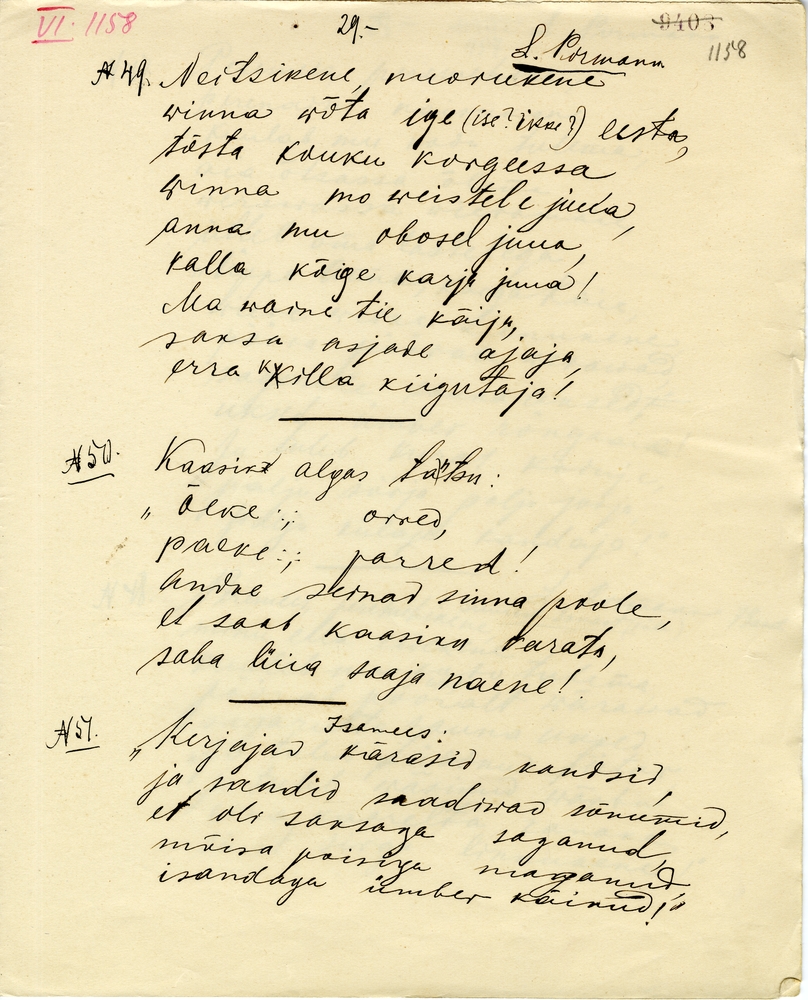 VI. 1158
29.-
9403
1158
L. Pormann
№ 49. Neitsikene, nuorukene
winna wõta ige (ise? ikke?) eesta,
tõsta kouku korgeessa
winna mo weistele juua,
anna mu obosel juua,
kalla kõige karja juua!
Ma waene tie käiju,
saksa asjade ajaja,
erra killa kiigutaja!
№ 50. Kaasike algas tätsu:
„Õlke :,: orred,
paeke :,: parred!
andke seinad sinna poole,
et saab kaasiku karata,
saba lüia saaja naene!
№ 51. Isamees:
„Kerjajad kärasid kandsid,
ja sandid saadiwad sõnumid,
et oli saksaga saganud,
mõisa poisiga maganud,
isandaga ümber käinud!"